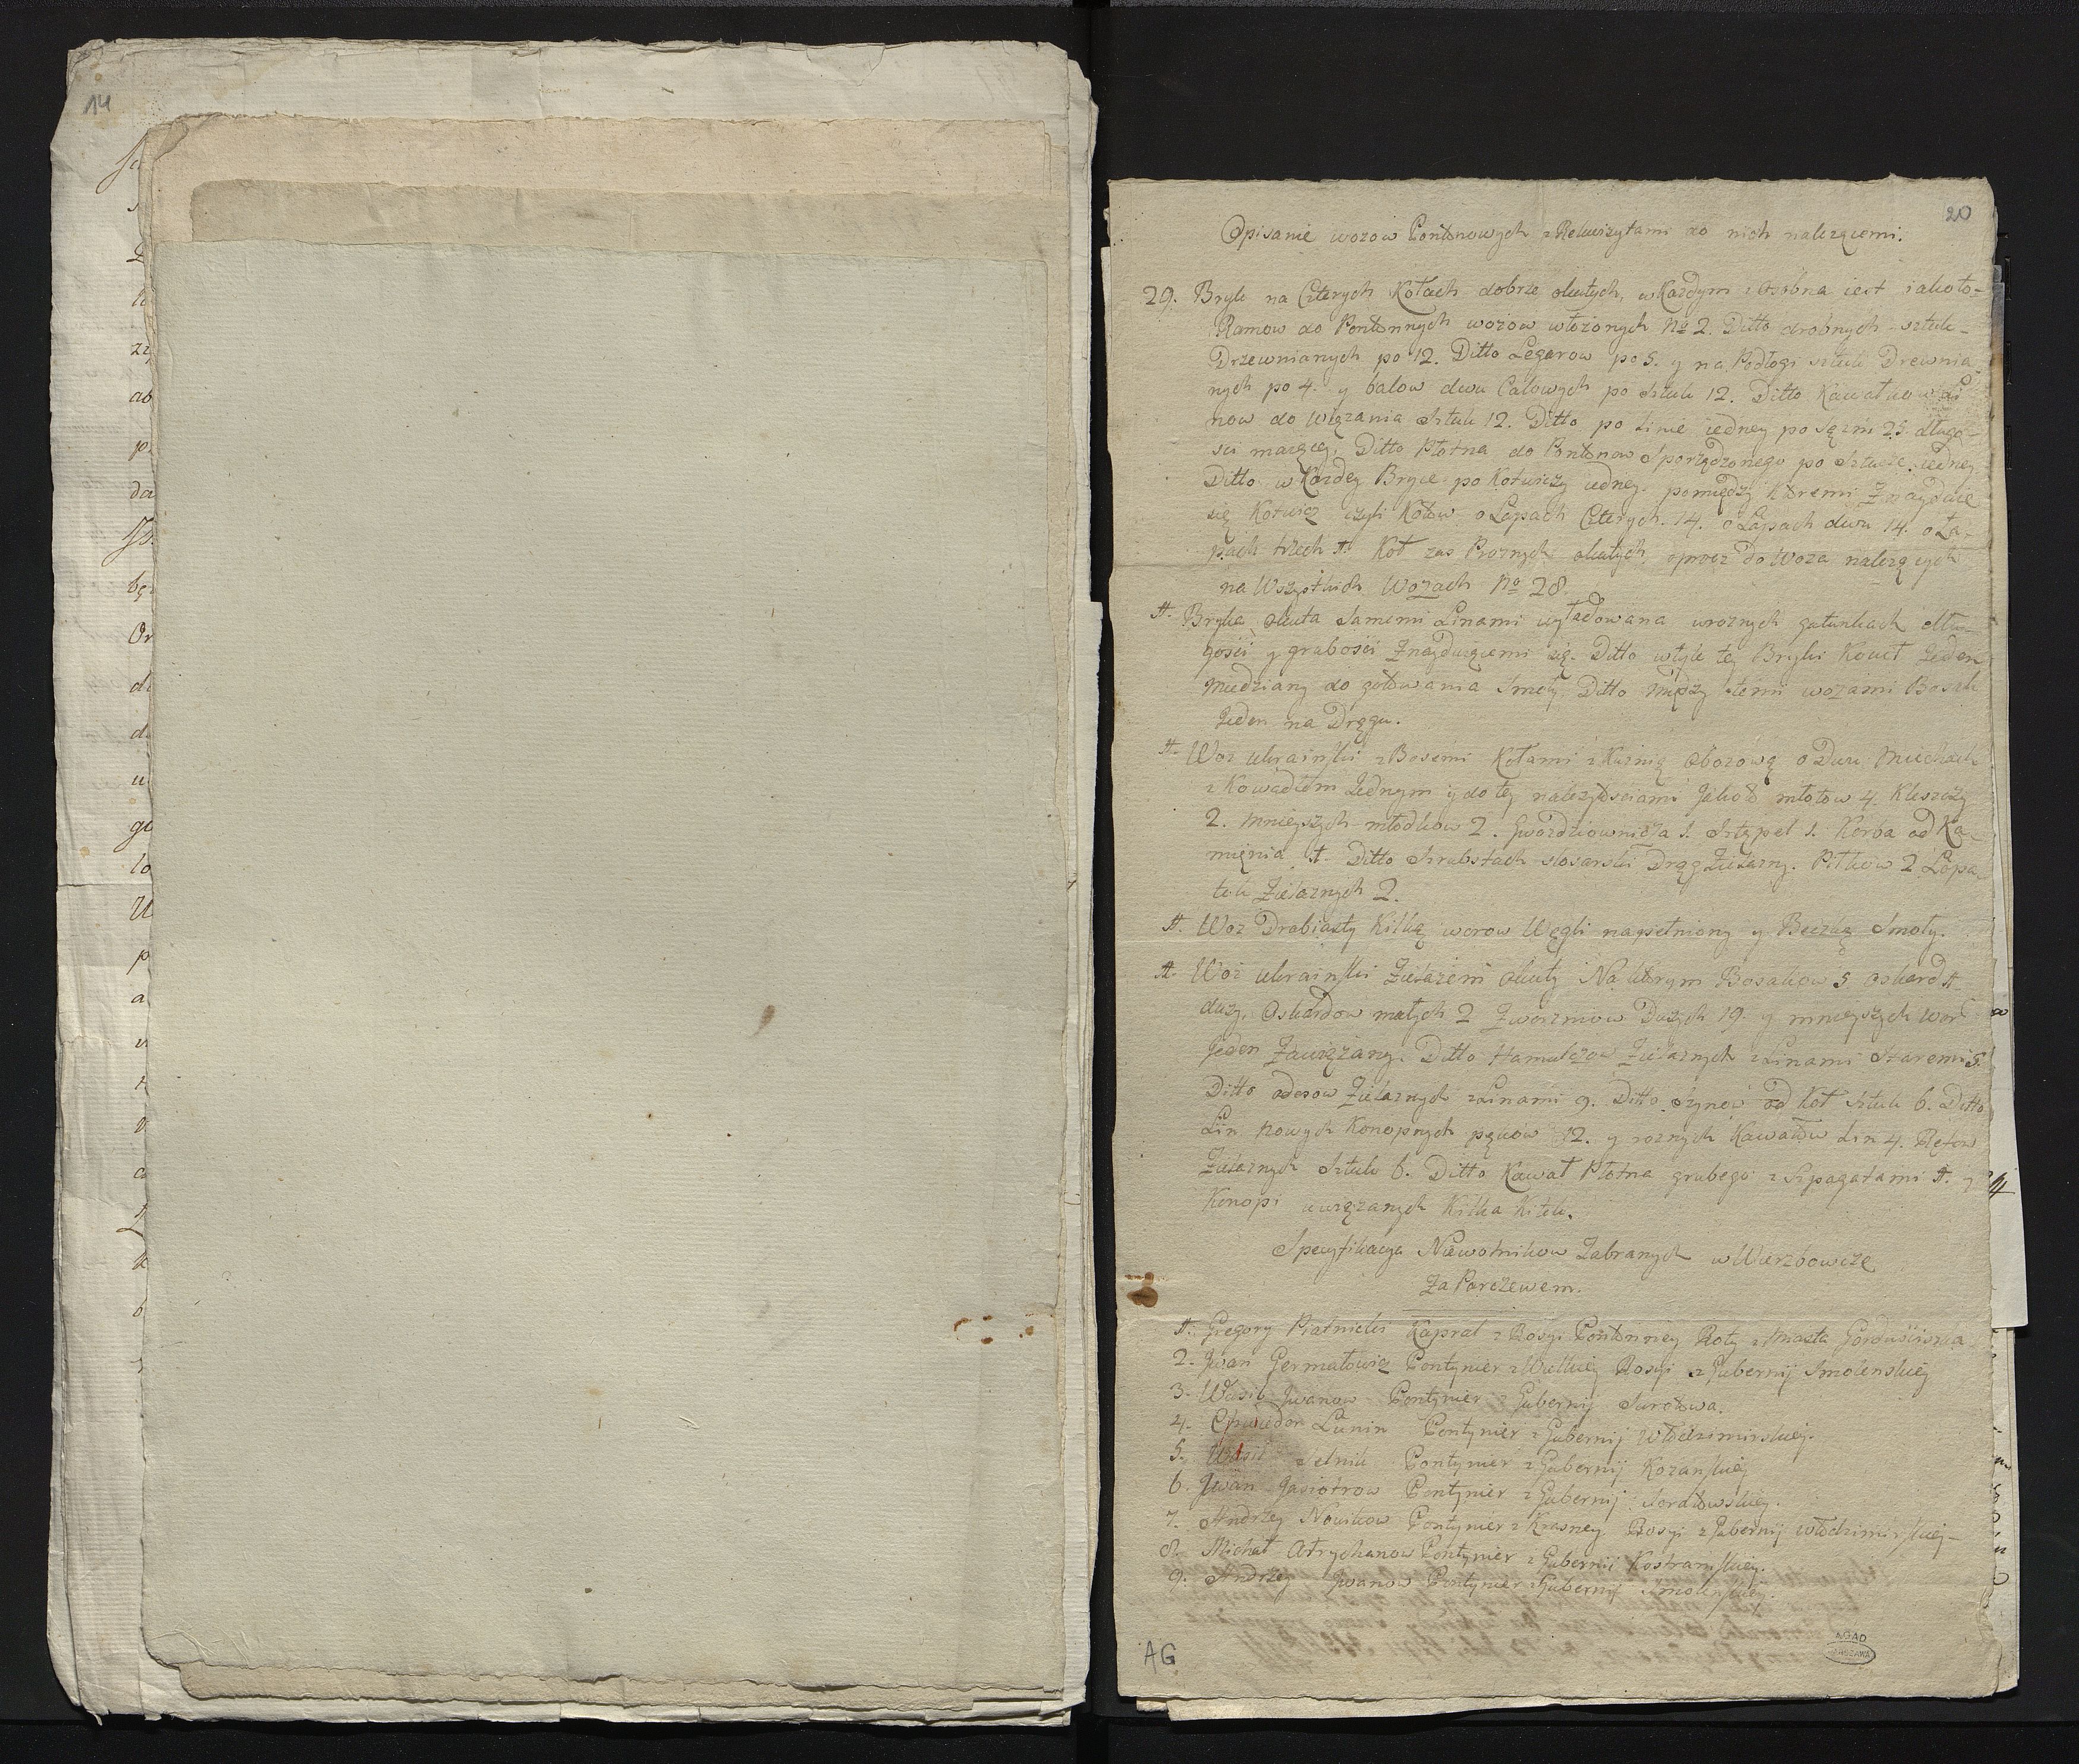 14
20
Opisanie wozow Pontonowych z Rekwizytami do nich należącemi.
29. Bryk na Czterych Kołach dobrze okutych, w Każdym z Osobna iest iakoto-
Ramow do Pontonnych wozow włożonych No 2. Ditto drobnych sztuk-
Drzewnianych po 12. Ditto Legarow po 5. y na Podłogi sztuk Drewnia-
nych po 4. y balow dwu Calowych po Sztuk 12. Ditto Kawałkow Li
now do wiązania Sztuk 12. Ditto po Linie iedney po Sążni 25 długo-
sci maiącey, Ditto Płotna do Pontonow Sporządzonego po Sztuce iedney
Ditto w Każdey Bryce po Kotwiczy iedney, pomiędzy Ktoremi Znayduie
się Kotwicz czyli Kotow o Łapach Czterych 14. o Łapach dwu 14. o Ła-
pach trzech 1. Koł zas Proznych okutych, oprocz do Woza należących
na Wszystkich Wozach No 28.
1. Bryka okuta Samemi Linami wyładowana w roznych gatunkach dłu-
gości y grubości Znayduiącemi się. Ditto w tyle tey Bryki Kocieł Jeden
Miedziany do gotowania Smoły. Ditto Między temi wozami Bosak
Jeden na Drągu.
1. Woz ukraiński z Bosemi Kołami z Kuźnią Obozową o Dwu Miechach
z Kowadłem Jednym y do tey należytościami Jakoto młotow 4. Kleszczy
2. Mnieyszych młotkow 2. Gwozdziownicza 1. Sztępel 1. Korba od Ka-
mięnia 1. Ditto Szrubstach slosarski Drąg Żelazny. Pilkow 2 Łopa-
tek Żelaznych 2.
1. Woz Drabiasty Kilką worow Węgli napełniony y Beczką Smoły.
1. Woz ukraiński Żelazem okuty Na ktorym Bosakow 5 Oskard 1
duży, Oskardow małych 2 Zworzniow Dużych 19. y mnieyszych wor
Jeden Zawiązany. Ditto Hamulcow Żelaznych z Linami Staremi 5.
Ditto Żelaznych z Linami 9. Ditto Szynow od Koł Sztuk 6. Ditto
Lin Nowych Konopnych pękow 12. y roznych Kawałow Lin 4.
Żelaznych Sztuk 6. Ditto Kawał Płotna grubego z Szpagatami 1. y
Konopi uwiązanych Kilka Kitek.
Specyfikacya Niewolnikow Zabranych w Wierzbowcze
Za Parczewem.
1. Gregory Piatnicki Kapral z Rosyi Pontonney Roty z Miasta
2. Jwan Germałowicz Pontynier z Wielkiey Rosyi z Gubernij Smolenskiey
3. Wasil Jwanow Pontynier z Gubernij
4. Lunin Pontynier z Gubernij Włodzimirskiey.
5. Wasil Selnik Pontynier z Gubernij Kozanskiey
6. Jwan Jasiotrow Pontynier z Gubernij
7. Andrzey Nowikow Pontynier z Krasney Rosyi z Gubernij włodzimirskiey-
8. Michał Pontynier z Gubernij Kostramskiey.
9. Andrzey Jwanow Pontynier z Gubernij Smolenskiey
AG
AGAD
WARSZAWA